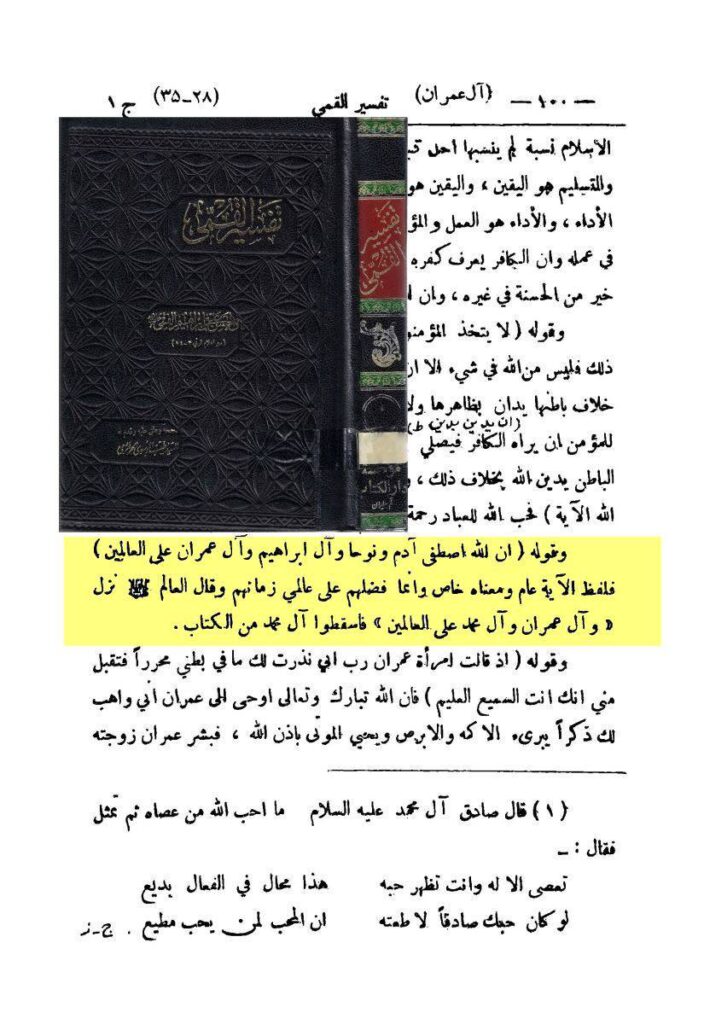 — ١٠٠ — (آل عمران) تفسير القمي (٢٨-٣٥) ج ١
الاسلام نسبة لم ينسبها احد
والتسليم هو اليقين ، واليقين هو
الأداء ، والأداء هو العمل
في عمله وان الكافر يعرف كفره
خير من الحسنة في غيره ، وان
وقوله ( لا يتخذ
ذلك فليس من الله في شيء الا
خلاف باطنها يدان بظاهرها
للمؤمن ان يراه الكافر فيصلي
الباطن يدين الله بخلاف ذلك ،
الله الآية ) فحب الله للعباد رحمة
تفسير القمي
تفسير
القمي
دار الكتاب
وقوله ( ان الله اصطفى آدم ونوحا وآل ابراهيم وآل عمران على العالمين )
فلفظ الآية عام ومعناه خاص وانما فضلهم على عالمي زمانهم وقال العالم نزل
« وآل عمران وآل محمد على العالمين » فاسقطوا آل محمد من الكتاب .
وقوله ( اذ قالت امرأة عمران رب اني نذرت لك ما في بطني محرراً فتقبل
مني انك انت السميع العليم ) فان الله تبارك وتعالى اوحى الى عمران اني واهب
لك ذكراً يبرىء الاكه والابرص ويحيي الموتى باذن الله ، فبشر عمران زوجته
(١) قال صادق آل محمد عليه السلام ما احب الله من عصاه ثم تمثل
فقال : _
تعصى الا له وانت تظهر حبه هذا محال في الفعال بديع
لو كان حبك صادقاً لاطعته ان المحب لمن يحب مطيع . ج-ز